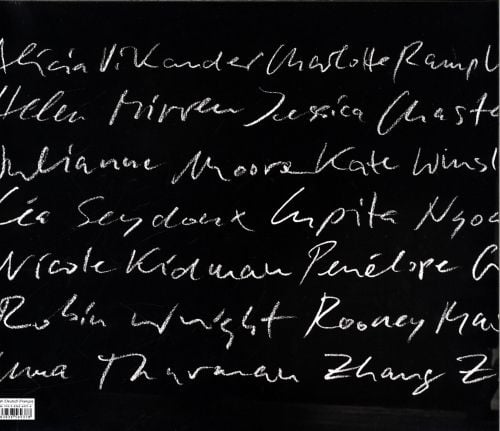 Alicia Vikander Charlotte Rampl
Helen Mirren Jessica Chaste
Julianne Moore Kate Winsl
Léa Seydoux Lupita Nyo
Nicole Kidman Penélope C
Robin Wright Rooney Mar
Uma Thurman Zhang Z